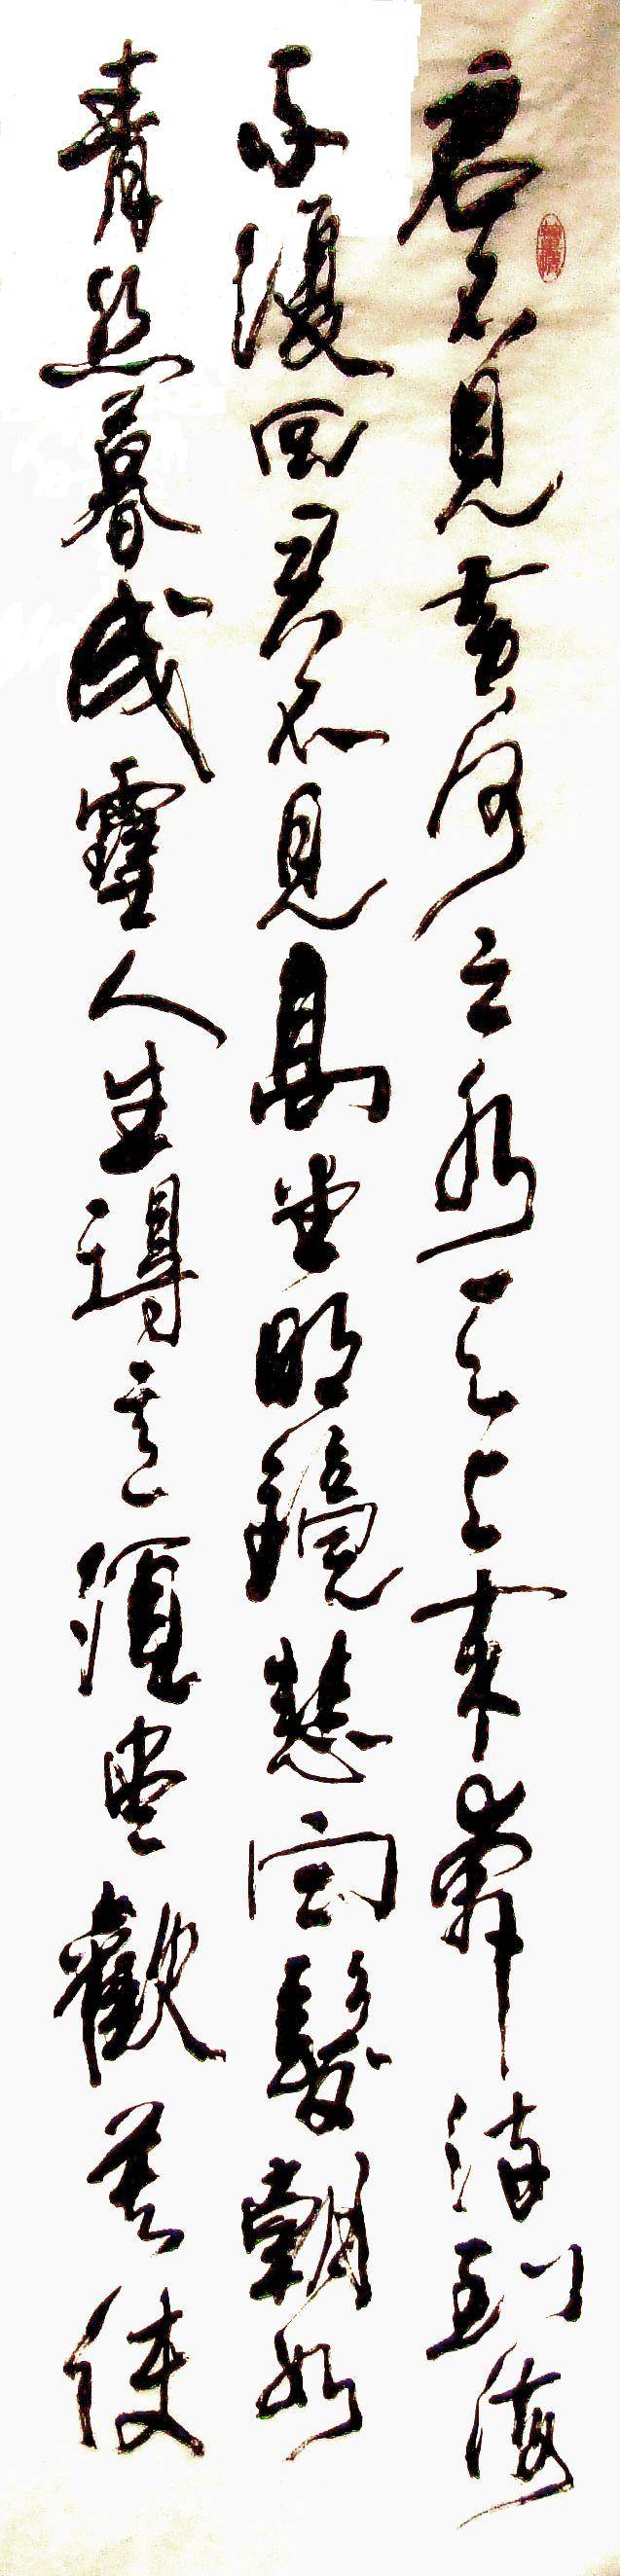 君不見黃河之水天上來奔流到海
不復回君不見高堂明鏡悲白髮朝如
青絲暮成雪人生得意須盡歡莫使